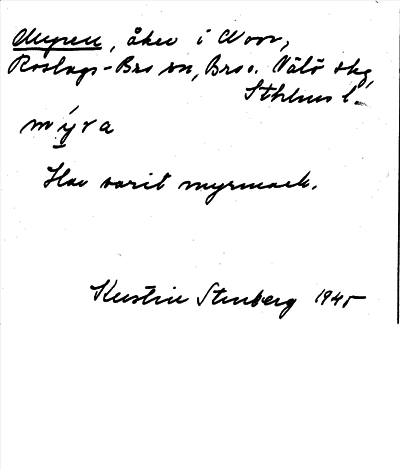 Myren, åker i Noor,
Roslags-Bro sn, Bro o. Vätö skg,
Sthlms l.
mýra
Har varit myrmark.
Kerstin Stenberg 1945